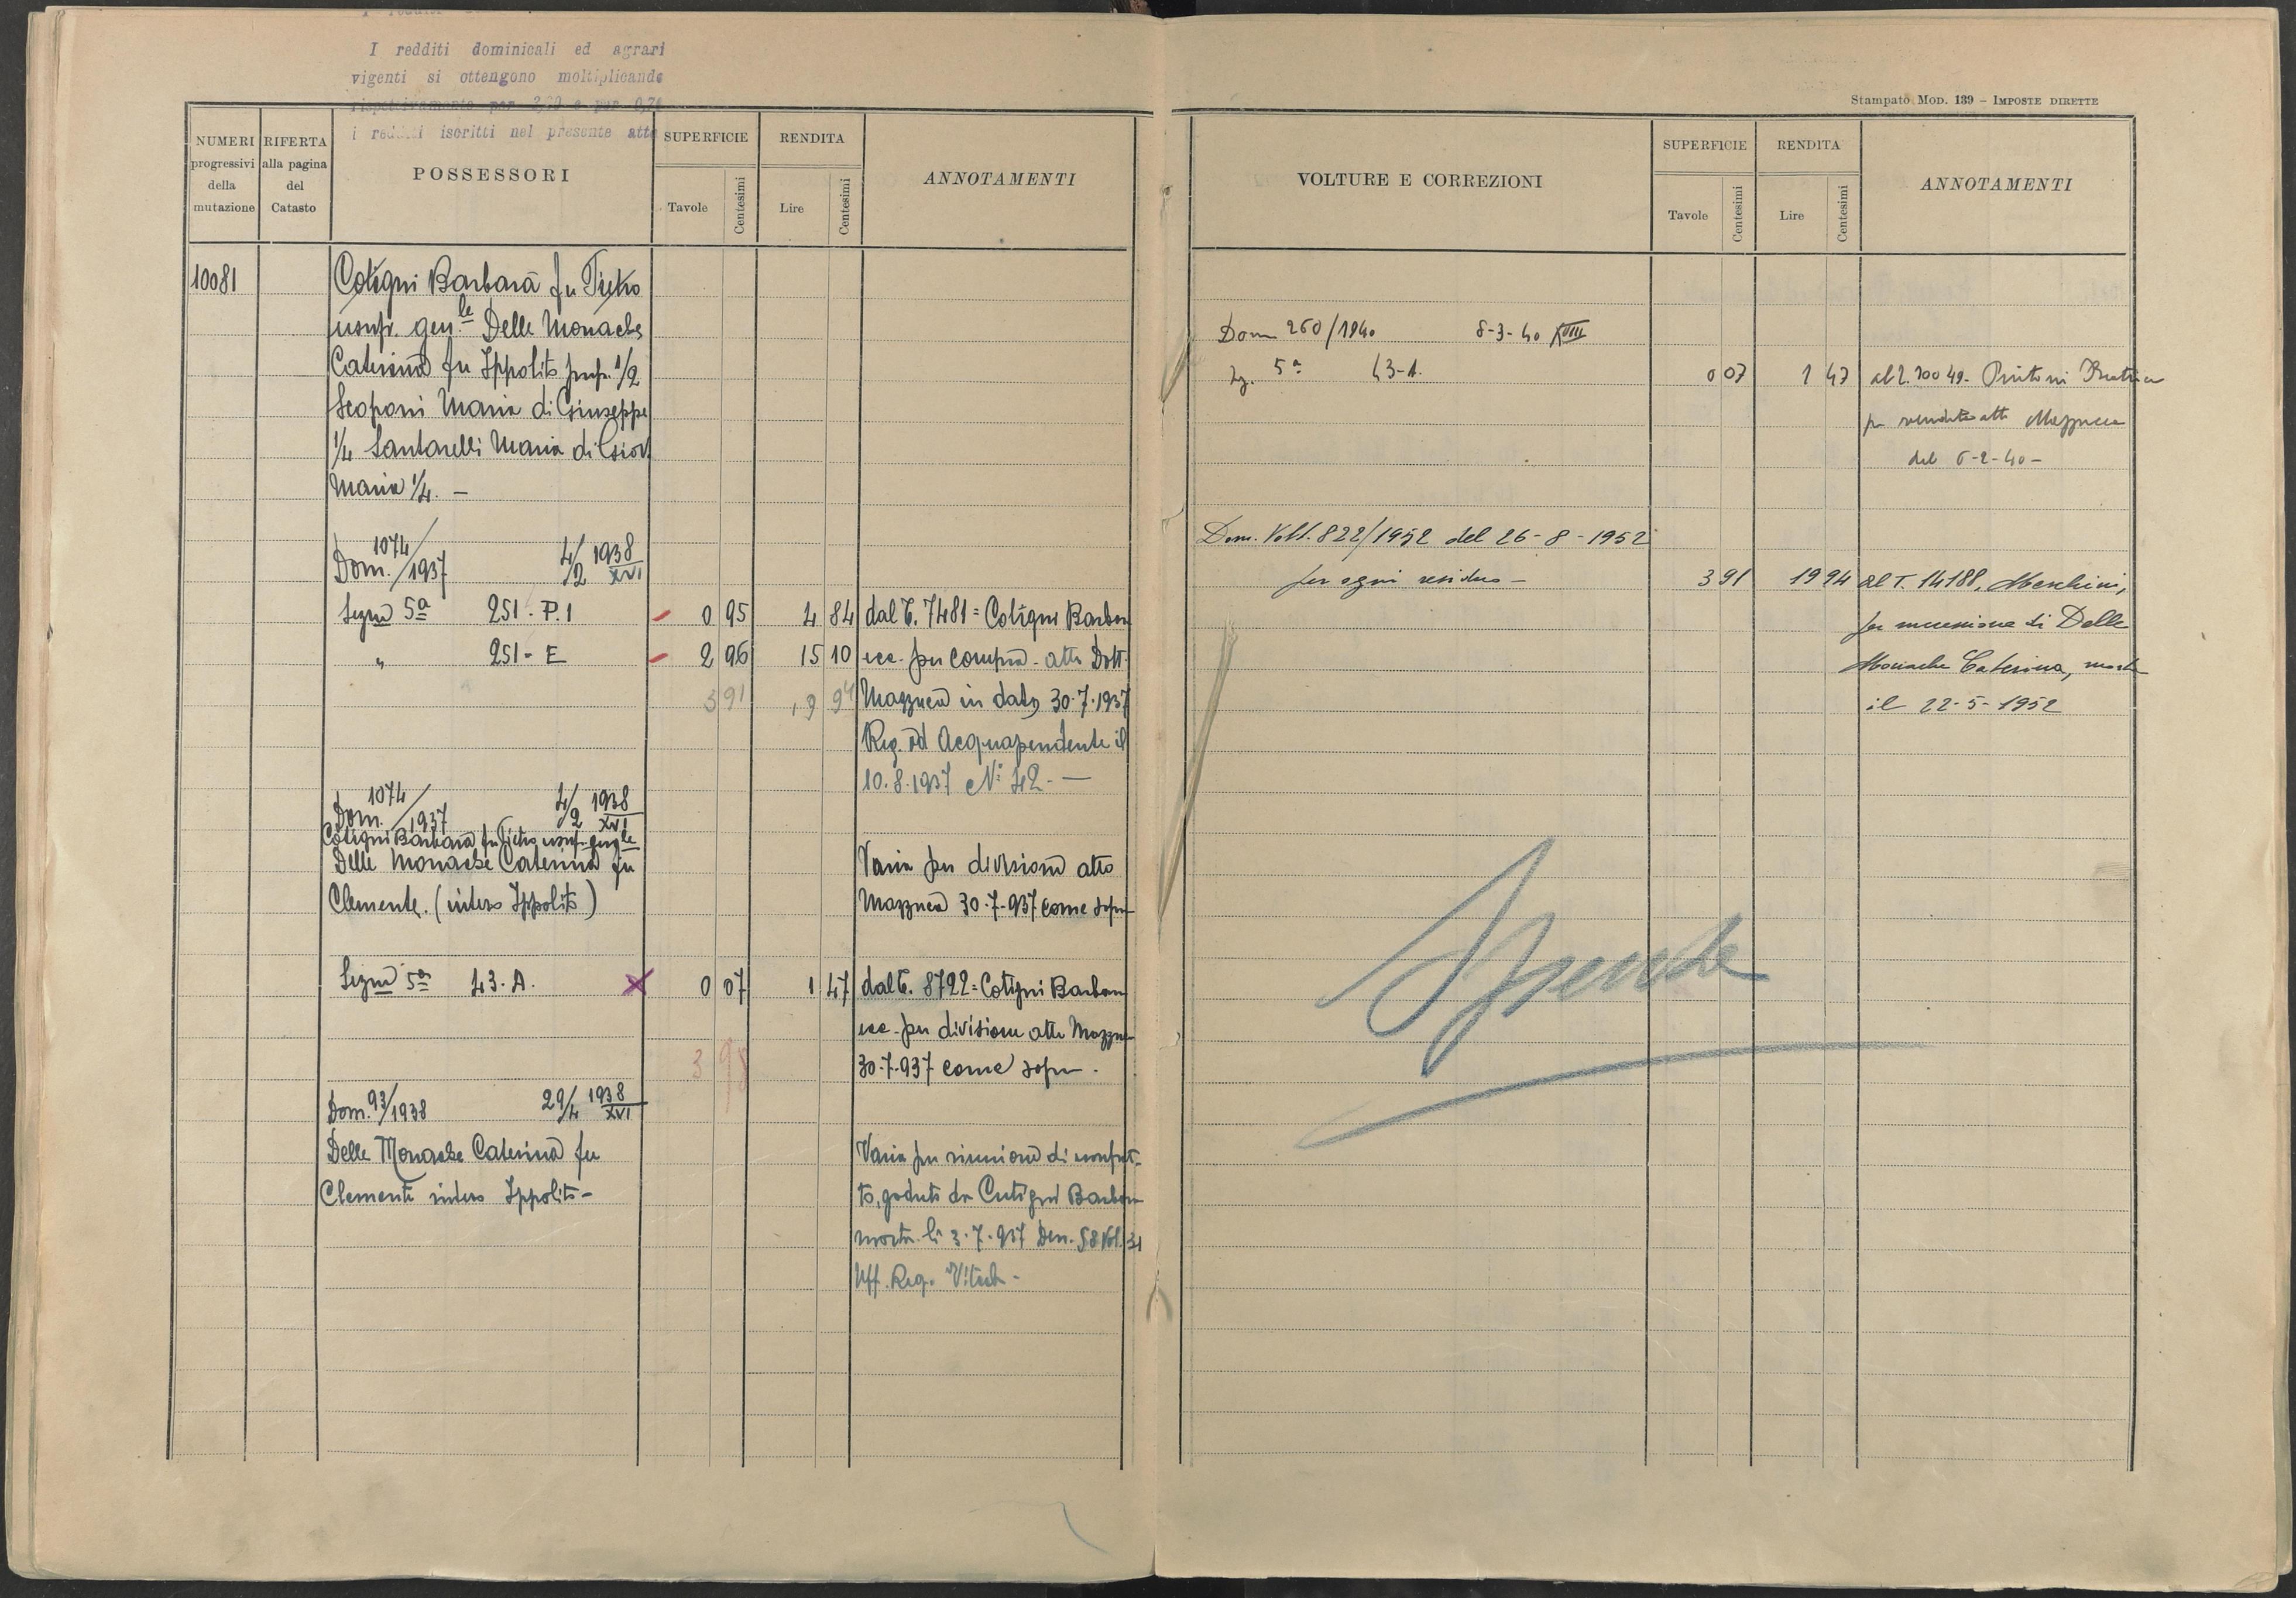 I redditi dominicali ed agrari
vigenti si ottengono moltiplicando
rispettivamente per 3,20 e per 0,76
i redditi iscritti nel presente atto
NUMERI progressivi della mutazione
RIFERTA alla pagina del Catasto
POSSESSORI
SUPERFICIE
Tavole Centesimi
RENDITA
Lire Centesimi
ANNOTAMENTI
10081 Cotigni Barbara fu Pietro
usufr. gen.le Delle Monache
Caterina fu Ippolito prop. 1/2
Scoponi Maria di Giuseppe
1/4 Santarelli Maria di Giov.
Maria 1/4. —
Dom. 1074/1937 4/2 1938 XVI
Sezne 5a 251 - P.1 0 95 4 84 dal T. 7481 = Cotigni Barbara
„ 251 - E 2 96 15 10 ecc. per compra - atto Dott.
3 91 19 94 Mazzuca in data 30.7.1937
Reg. ad Acquapendente il
10.8.1937 N: 42 - —
Dom. 1074/1937 4/2 1938 XVI
Cotigni Barbara fu Pietro usuf. gen.le
Delle Monache Caterina fu Varia per divisione atto
Clemente. (intero Ippolito) Mazzuca 30-7-937 come sopra
Sezne 5a 43. A. X 0 07 1 47 dal T. 8722 = Cotigni Barbara
ecc. per divisione atto Mazzuca
3 98 30-7-937 come sopra.
Dom. 93/1938 29/4 1938 XVI
Delle Monache Caterina fu Varia per riunione di usufrut-
Clemente intero Ippolito - to, goduto da Cutigni Barbara
morta li 3.7.937 Den. 58 Vol. 31
Uff. Reg. Viterbo -
Stampato Mod. 139 - IMPOSTE DIRETTE
VOLTURE E CORREZIONI
SUPERFICIE
Tavole Centesimi
RENDITA
Lire Centesimi
ANNOTAMENTI
Dom 260/1940 8-3-40 XVIII
5a 43-A. 0 07 1 47 al T. 10049 -
per vendita atto Mazzuca
del 6-2-40 -
Dom. Volt. 822/1952 del 26-8-1952
per ogni residuo - 3 91 19 94 al T. 14188, Meschini,
per successione di Delle
Monache Caterina, morta
il 22-5-1952
Spenta